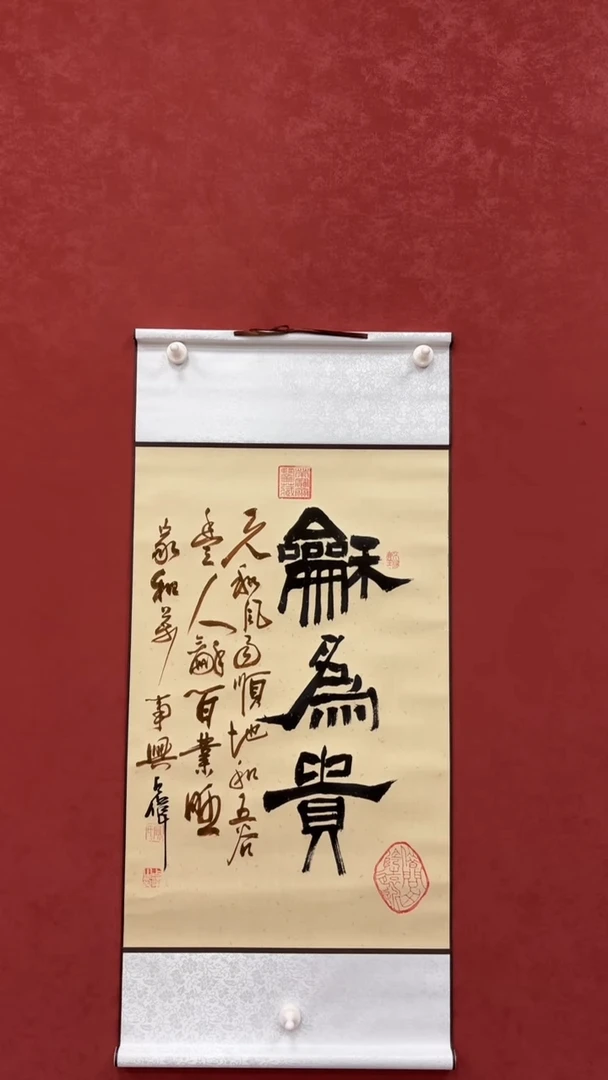 龢為貴
天和風雨順地和五谷
豐人龢百業旺
家和萬事興